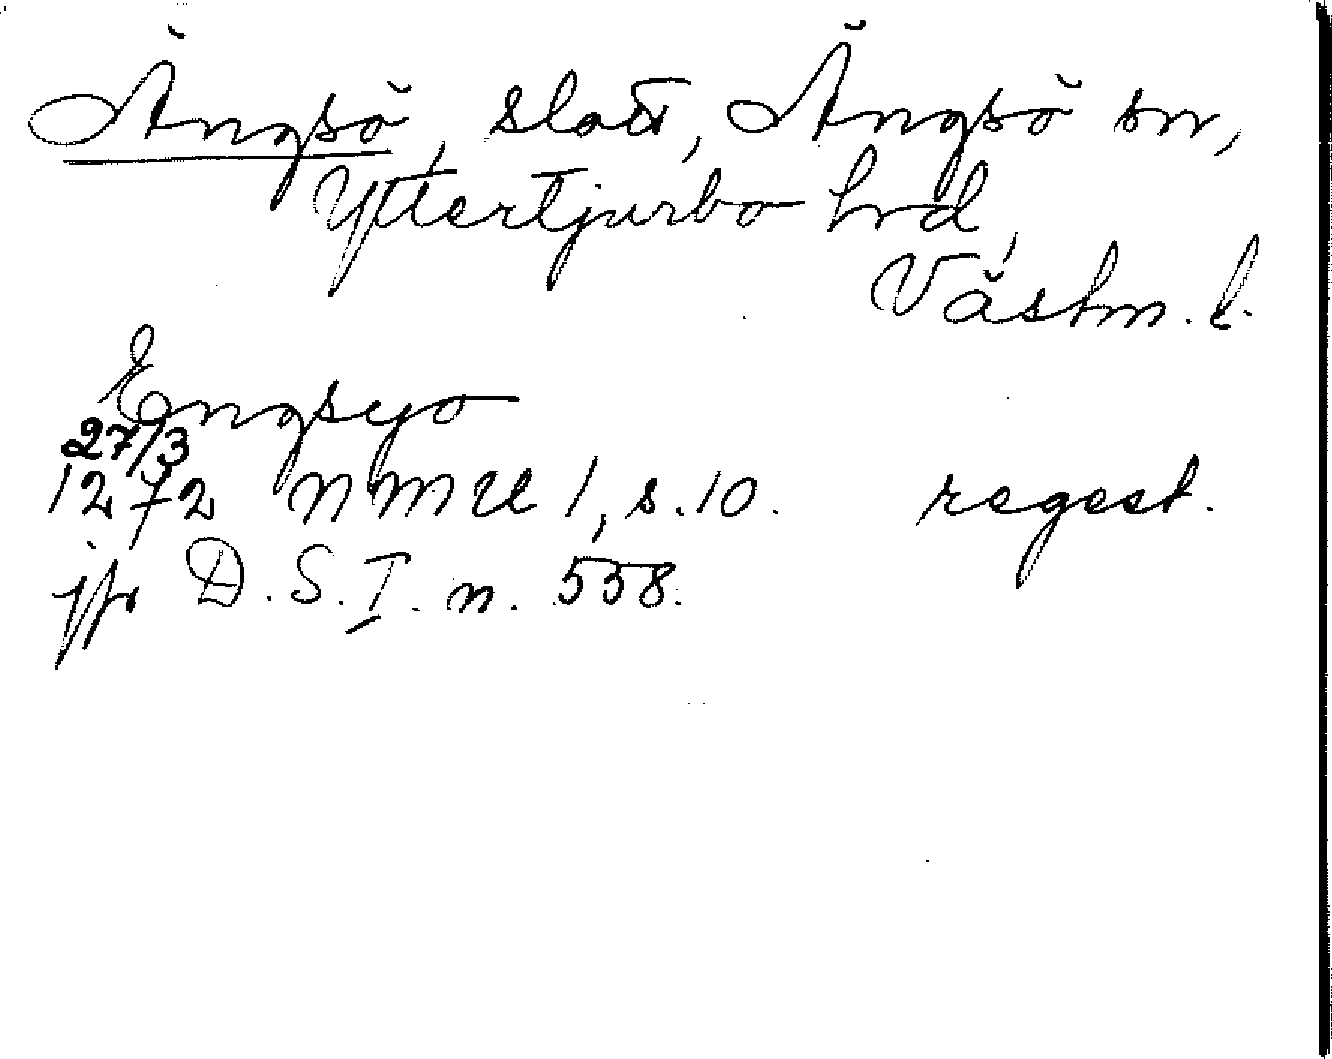 Ängsö, slott, Ängsö sn,
Yttertjurbo hrd,
Västm. l.
Engsyo
27/3
1272 NMU 1, s. 10. regest.
jfr D. S. I. n. 558.